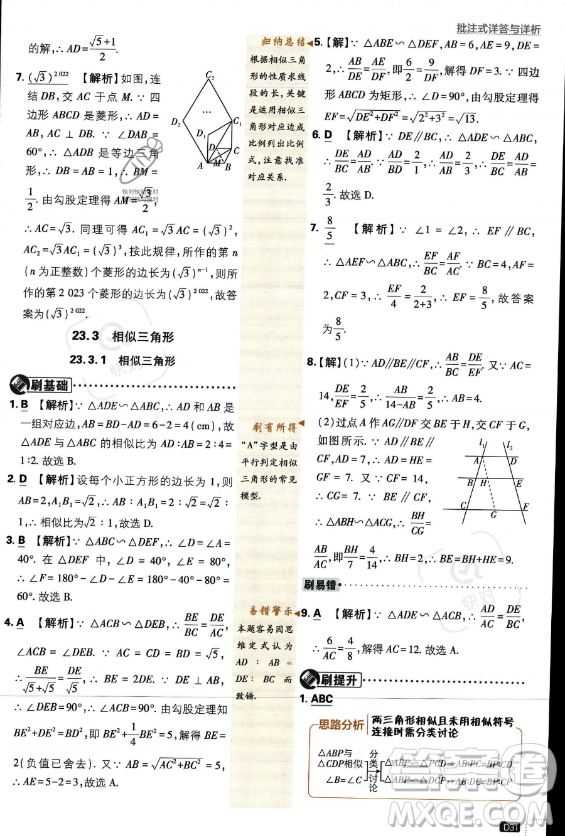 批注式详答与详析
的解,∴AD=(√5+1)/2.
7. (√3)^2022 【解析】如图,连
结BD,交AC于点M.∵四
边形ABCD是菱形,∴AD=
AB,AC⊥DB.∵∠DAB=
60°,∴△ADB是等边三角
形,∴DB=AB=1,∴BM=
1/2.由勾股定理得AM=√3/2,
∴AC=√3.同理可得AC₁=√3AC=(√3)²,
AC₂=√3AC₁=(√3)³,按此规律,所作的第n
(n为正整数)个菱形的边长为(√3)^(n-1),则所
作的第2 023个菱形的边长为(√3)^2022,故答
案为(√3)^2022.
D₂
C₂
D₁
C₁
D
C
A
M
B
23.3 相似三角形
23.3.1 相似三角形
刷基础
1. B 【解析】∵△ADE∽△ABC,∴AD与AB是
一组对应边,AB=BD-AD=6-2=4(cm),故
△ADE与△ABC的相似比为AD∶AB=2∶4=
1∶2.故选B.
2. D 【解析】设每个小正方形的边长为1,则
AB=2,A₁B₁=√2,∴AB∶A₁B₁=2∶√2=√2∶
1,∴相似比为√2∶1,故选D.
3. B 【解析】∵△ABC∽△DEF,∴∠D=∠A=
40°.在△DEF中,∠D=40°,∠E=80°,
∴∠F=180°-∠D-∠E=180°-40°-80°=
60°.故选B.
4. A 【解析】∵△ACB∽△DEB,∴BE/BC=DE/AC.
∠ACB=∠DEB.∵AC=CD=BD=√5,
∴BE/(√5+√5)=DE/√5,∴BE=2DE.∵DE⊥AB,
∴∠DEB=90°,∠ACB=90°.由勾股定理知
BE²+DE²=BD²,即BE²+1/4BE²=5,∴BE=
2(负值已舍去).又∵AB=√(AC²+BC²)=5,
∴AE=5-2=3,故选A.
归纳总结
根据相似三角
形的性质求线
段的长,关键
是运用相似三
角形对应边成
比例列出比例
式,注意找准
对应关系.
刷有所得
“A”字型是由
平行判定相似
三角形的常见
模型.
易错警示
本题容易因思
维定式认为
AD∶AB=
DE∶BC而
致错.
5. 【解】∵△ABE∽△DEF,AB=6,AE=9,DE=
2,∴AB/DE=AE/DF,即6/2=9/DF,解得DF=3.∵四边
形ABCD为矩形,∴∠D=90°,由勾股定理得
EF=√(DE²+DF²)=√(2²+3²)=√13.
6. D 【解析】∵DE∥BC,∴△ADE∽△ABC,
∴DE/BC=AD/AB.∵AD/BD=2/1,∴AD/AB=2/3,∴DE/BC=AD/AB=
2/3.故选D.
7. 8/5 【解析】∵∠1=∠2,∴EF∥BC,
∴△AEF∽△ABC,∴EF/BC=AF/AC.∵AF=4,BC=
2,CF=1,∴EF/2=4/(4+1),∴EF=8/5,故答案
为8/5.
8. 【解】(1)∵AD∥BE∥CF,∴AB/BC=DE/EF.又∵
DE/EF=2/5,∴AB/(14-AB)=2/5,∴AB=4.
(2)过点A作AG∥DF交BE于H,交CF于G,
如图所示.∵AD∥BE∥
CF,AD=7,∴AD=HE=
GF=7.又∵CF=14,
∴CG=14-7=7.∵BE∥CF,
∴△ABH∽△ACG,∴BH/CG=
AB/AC,即BH/7=4/14,∴BH=2,∴BE=2+7=9.
l₁
l₂
A
D
B
H
E
C
G
F
刷易错
9. A 【解析】∵△ADE∽△ACB,∴AD/AC=DE/BC,
∴6/AC=4/8,解得AC=12.故选A.
刷提升
1. ABC
思路分析
两三角形相似且未用相似符号
连接时需分类讨论
△ABP与
△CDP相似
∠B=∠C
分类讨论
D31